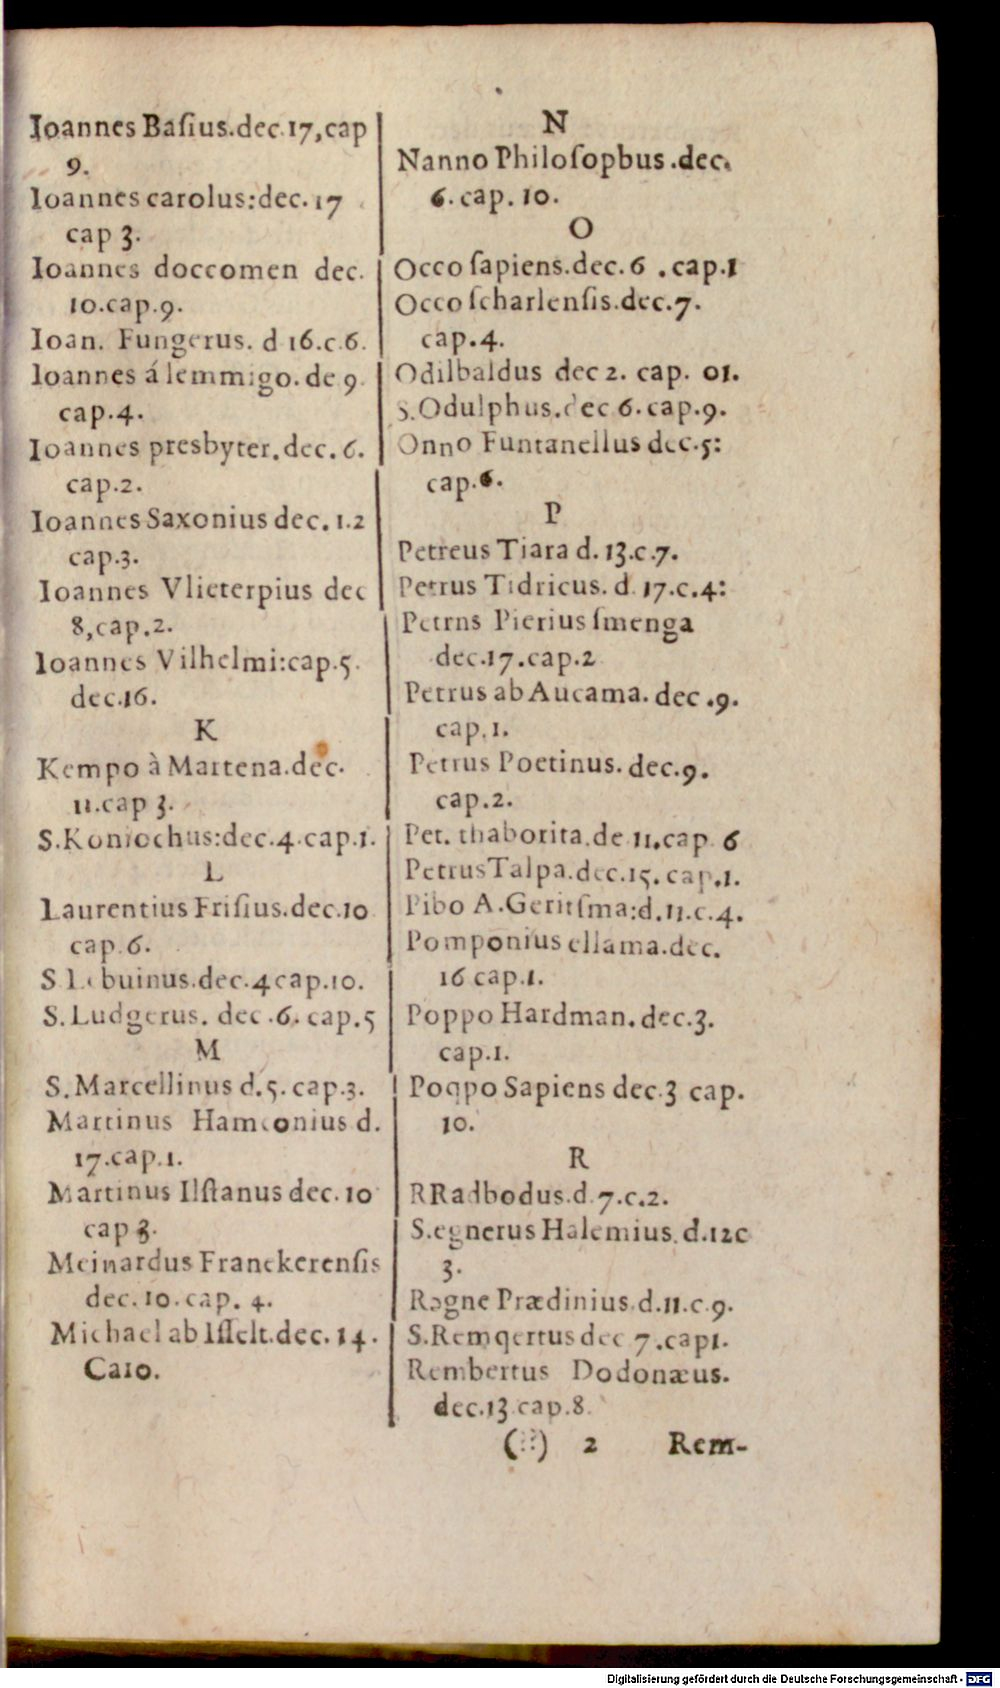 Ioannes Baſius.dec.17,cap
9.
Ioannes carolus:dec.17
cap 3.
Ioannes doccomen dec.
10.cap.9.
Ioan. Fungerus. d 16.c.6.
Ioannes á lemmigo.de 9.
cap.4.
Ioannes presbyter.dec.6.
cap.2.
Ioannes Saxonius dec.1.2
cap.3.
Ioannes Vlieterpius dec
8,cap.2.
Ioannes Vilhelmi:cap.5.
dec.16.
K
Kempo à Martena.dec.
11.cap 3.
S.Koniochus:dec.4.cap.1.
L
Laurentius Friſius.dec.10
cap.6.
S Lebuinus.dec.4cap.10.
S.Ludgerus. dec.6.cap.5
M
S.Marcellinus d.5.cap.3.
Martinus Hamconius d.
17.cap.1.
Martinus Ilſtanus dec.10
cap 3.
Meinardus Franekerenſis
dec.10.cap.4.
Michael ab Iſſelt.dec.14.
Ca10.
N
Nanno Philoſopbus.dec.
6.cap.10.
O
Occo ſapiens.dec.6.cap.1
Occo ſcharlenſis.dec.7.
cap.4.
Odilbaldus dec 2. cap. 01.
S.Odulphus.dec 6.cap.9.
Onno Funtanellus dec.5:
cap.6.
P
Petreus Tiara d.13.c.7.
Petrus Tidricus.d.17.c.4:
Petrns Pierius ſmenga
dec.17.cap.2
Petrus ab Aucama.dec.9.
cap.1.
Petrus Poetinus.dec.9.
cap.2.
Pet. thaborita.de 11.cap 6
Petrus Talpa.dec.15.cap.1.
Pibo A.Geritſma:d.11.c.4.
Pomponius ellama.dec.
16 cap.1.
Poppo Hardman.dec.3.
cap.1.
Poqpo Sapiens dec.3 cap.
10.
R
RRadbodus.d.7.c.2.
S.egnerus Halemius.d.12c
3.
Rogne Prædinius.d.11.c.9.
S.Remqertus dec 7.cap1.
Rembertus Dodonæus.
dec.13.cap.8.
(⁝⁝) 2 Rem-
Digitalisierung gefördert durch die Deutsche Forschungsgemeinschaft - DFG